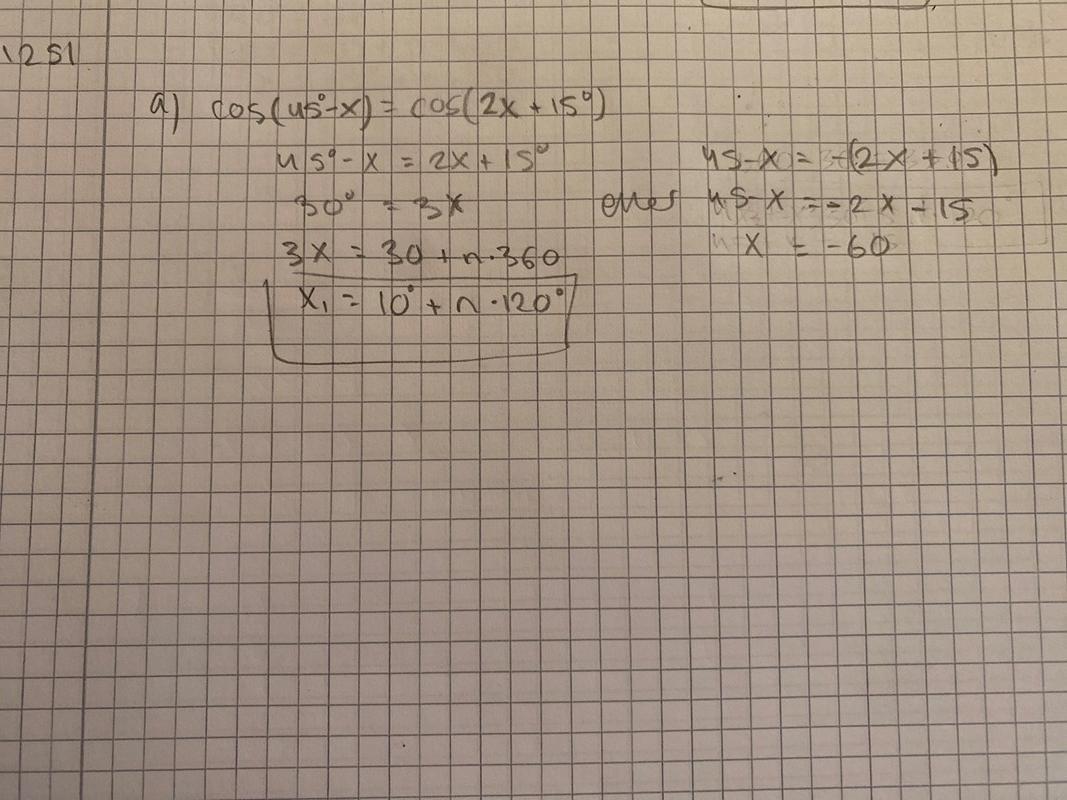 1251
a) cos(45°-x) = cos(2x+15°)
45°-x = 2x+15°
30° = 3x
3x = 30+n·360
x₁ = 10°+n·120°
45-x = -(2x+15)
eller 45-x = -2x-15
x = -60